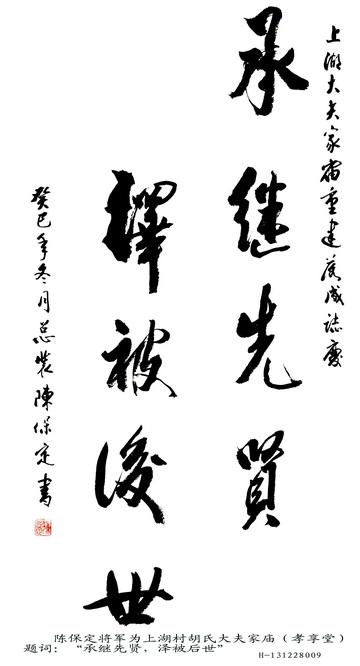 上湖大夫家庙重建落成誌慶
承继先贤
擇被後世
癸巳年冬月总装陳保定書
陈保定将军为上湖村胡氏大夫家庙（孝享堂）
题词：“承继先贤，泽被后世”
H-131228009